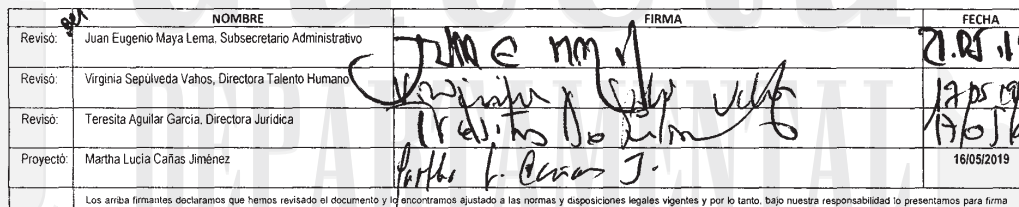 NOMBRE FIRMA FECHA
Revisó: Juan Eugenio Maya Lema, Subsecretario Administrativo
Revisó: Virginia Sepúlveda Vahos, Directora Talento Humano
Revisó: Teresita Aguilar García, Directora Jurídica
Proyectó: Martha Lucía Cañas Jiménez Martha L. Cañas J. 16/05/2019
Los arriba firmantes declaramos que hemos revisado el documento y lo encontramos ajustado a las normas y disposiciones legales vigentes y por lo tanto, bajo nuestra responsabilidad lo presentamos para firma
DEPARTAMENTAL